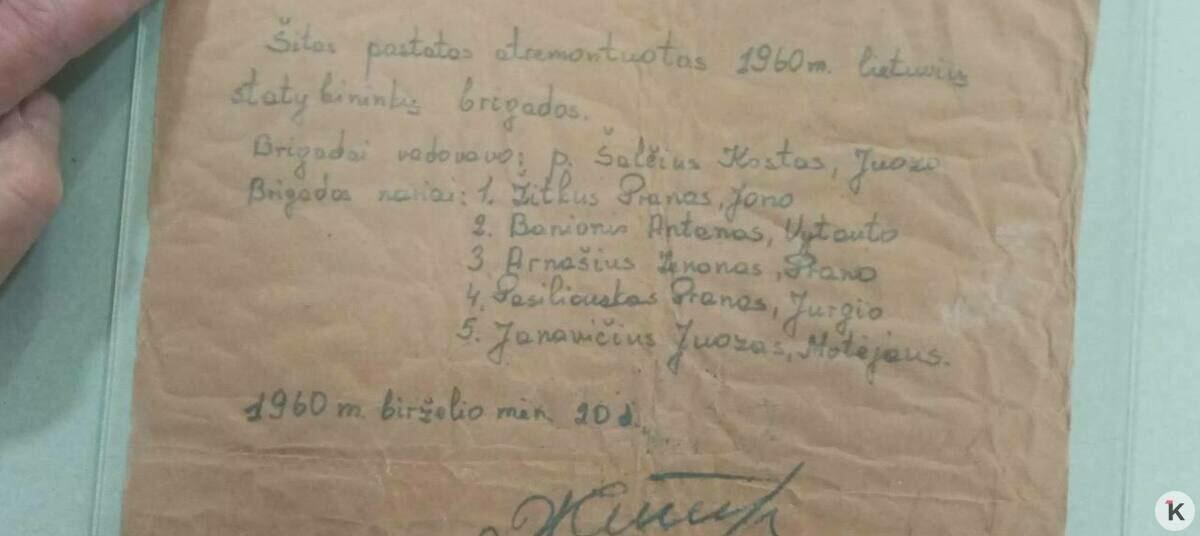 Šitas pastatas atremontuotas 1960m. lietuvių
statybininkų brigados.
Brigadai vadovavo: p. Šalčius Kostas, Juozo
Brigados nariai: 1. Žitkus Pranas, Jono
2. Banionis Antanas, Vytauto
3 Arnašius Zenonas, Prano
4. Pasiliauskas Pranas, Jurgio
5. Janavičius Juozas, Motėjaus.
1960 m. birželio mėn. 20 d.
K